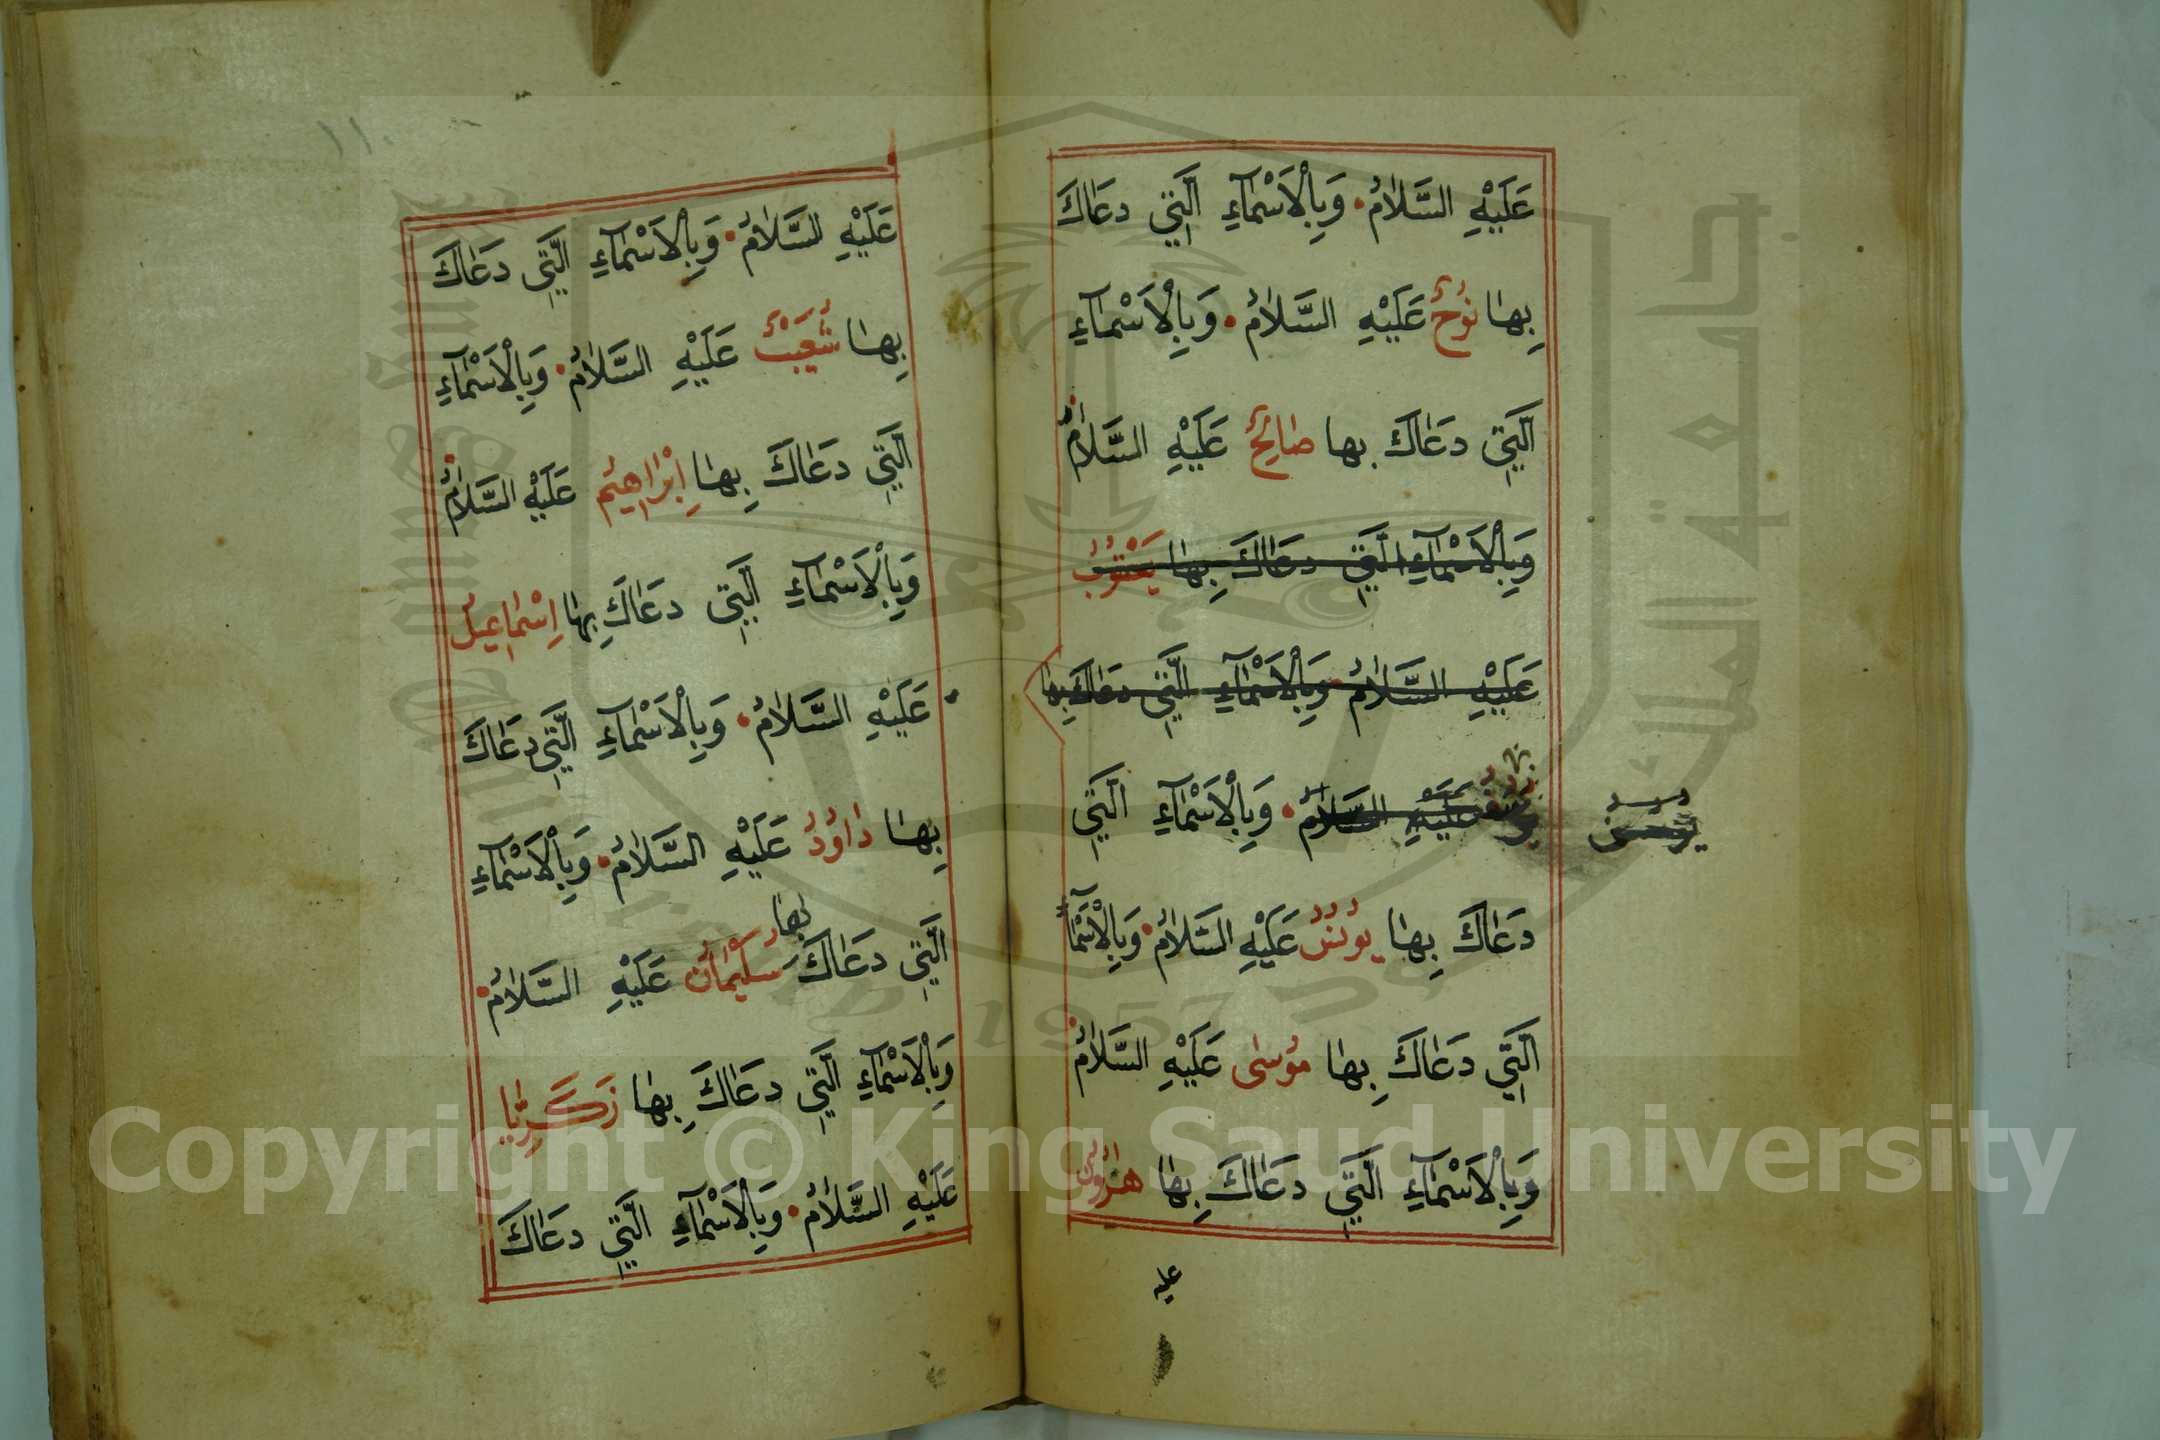 عَلَيْهِ السَّلَامُ. وَبِالْاَسْمَآءِ الَّتِي دَعَاكَ
بِهَا نُوْحٌ عَلَيْهِ السَّلَامُ. وَبِالْاَسْمَآءِ
الَّتِي دَعَاكَ بِهَا صَالِحٌ عَلَيْهِ السَّلَامُ.
وَبِالْاَسْمَآءِ الَّتِي دَعَاكَ بِهَا يَعْقُوْبُ
عَلَيْهِ السَّلَامُ وَبِالْاَسْمَآءِ الَّتِي دَعَاكَ بِهَا
عَلَيْهِ السَّلَامُ. وَبِالْاَسْمَآءِ الَّتِي
دَعَاكَ بِهَا يُوْنُسُ عَلَيْهِ السَّلَامُ. وَبِالْاَسْمَآءِ
الَّتِي دَعَاكَ بِهَا مُوْسٰى عَلَيْهِ السَّلَامُ.
وَبِالْاَسْمَآءِ الَّتِي دَعَاكَ بِهَا هٰرُوْنُ
عليه
١١٠
عَلَيْهِ السَّلَامُ. وَبِالْاَسْمَآءِ الَّتِي دَعَاكَ
بِهَا شُعَيْبٌ عَلَيْهِ السَّلَامُ. وَبِالْاَسْمَآءِ
الَّتِي دَعَاكَ بِهَا اِبْرَاهِيْمُ عَلَيْهِ السَّلَامُ.
وَبِالْاَسْمَآءِ الَّتِي دَعَاكَ بِهَا اِسْمَاعِيْلُ
عَلَيْهِ السَّلَامُ. وَبِالْاَسْمَآءِ الَّتِي دَعَاكَ
بِهَا دَاوُدُ عَلَيْهِ السَّلَامُ. وَبِالْاَسْمَآءِ
الَّتِي دَعَاكَ بِهَا سُلَيْمَانُ عَلَيْهِ السَّلَامُ.
وَبِالْاَسْمَآءِ الَّتِي دَعَاكَ بِهَا زَكَرِيَّا
عَلَيْهِ السَّلَامُ. وَبِالْاَسْمَآءِ الَّتِي دَعَاكَ
جامعة الملك
1957
Copyright © King Saud University